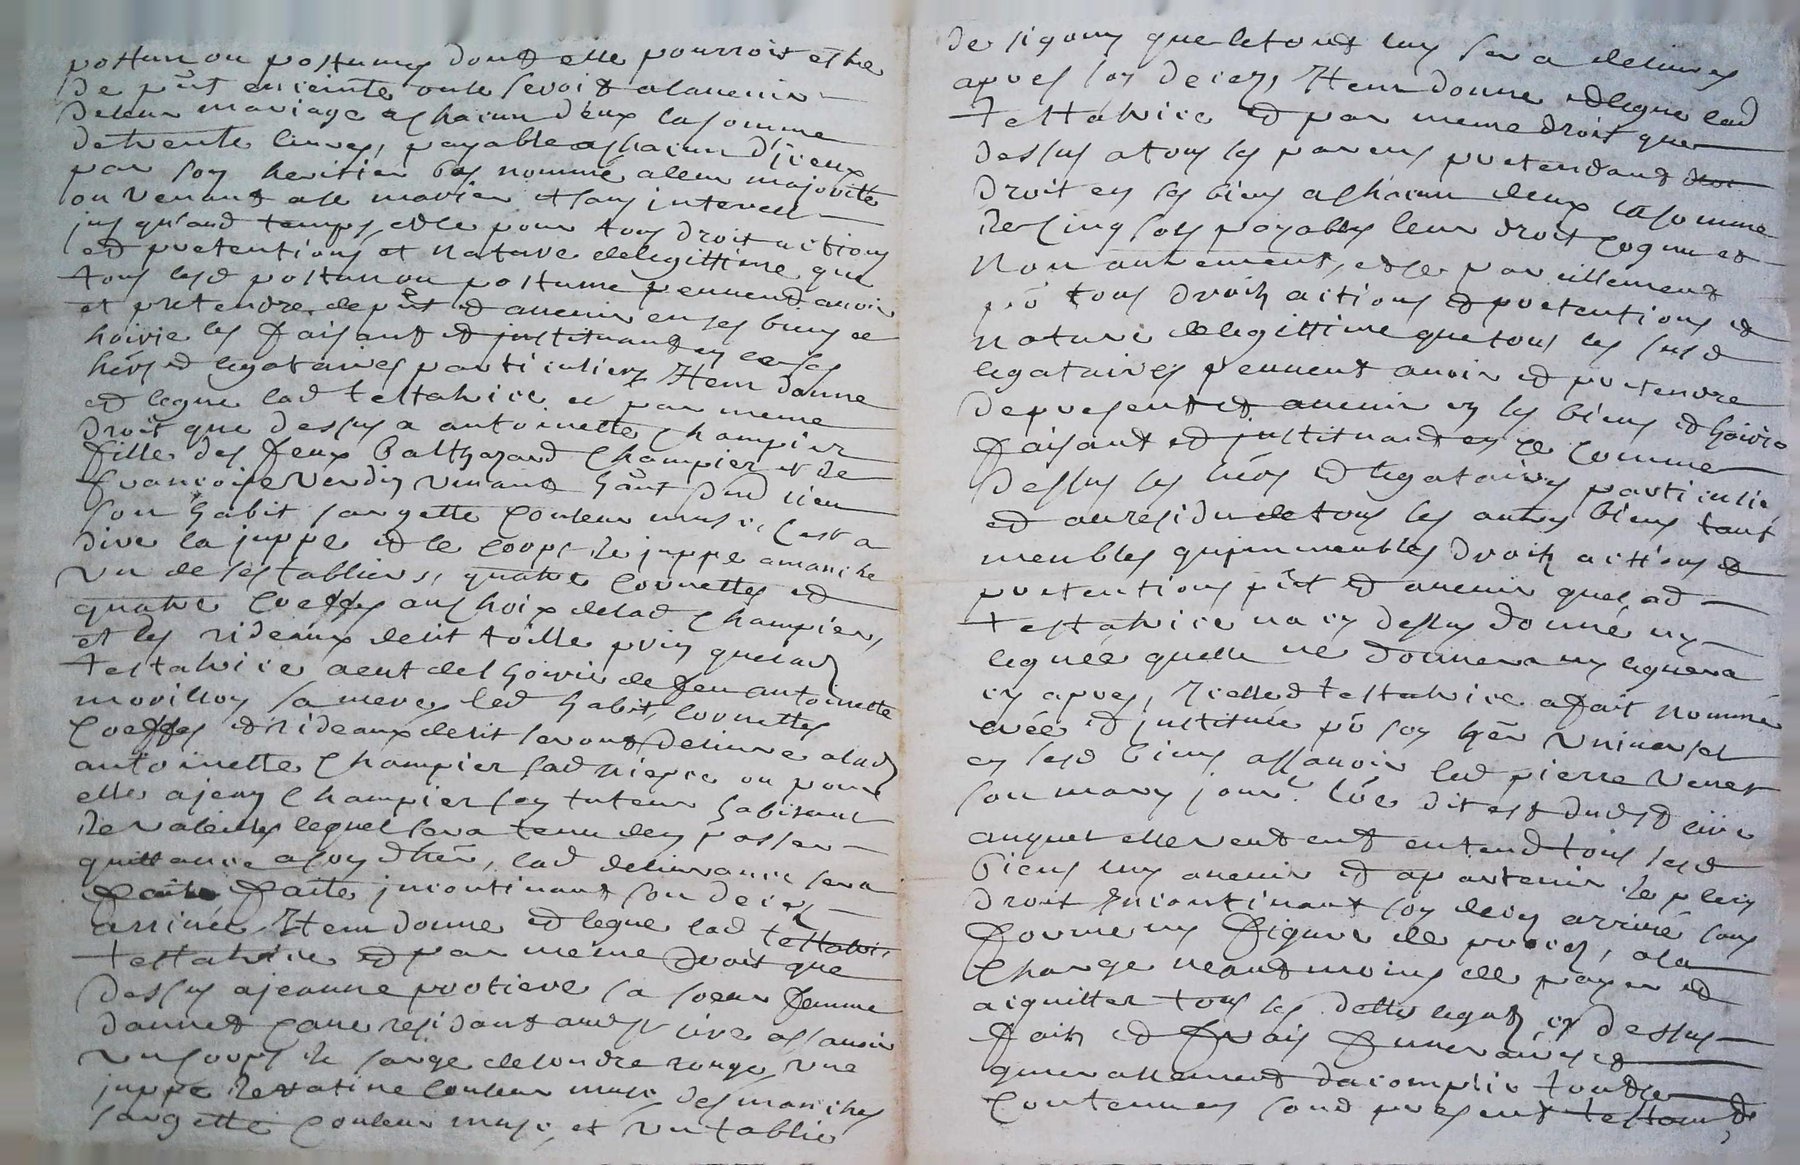 posthum ou posthumes dont elle pourroit estre
de pnt enceinte ou le seroit a lavenir
de leur mariage a chacun deux la somme
de trente livres, payable a chacun diceux
par son heritier bas nommé a leur majorité
ou venant a se marier et sans interest
jusquaud temps et ce pour tous droit actions
et pretentions et nature de legittime que
tous lesd posthum ou postume peuvent avoir
et pretendre de pnt et avenir en ses biens et
hoirie les faisant et instituant en ce ses
hérs et legataires particuliers, Item donne
et legue lad testatrice et par meme
droit que dessus a antoinette Champier
fille des feux Balthazard Champier et de
francoise Verdin vivants hânt dud lieu
son habit sargette couleur musc, cest a
dire la juppe et le corps de juppe a manche
un de ses tabliers, quatre cornettes et
quatre coeffes au choix de lad Champier,
et les rideaux de lit toille prin que lad
testatrice a eut de l hoirie de feu antoinette
morillon sa mere, led habit, cornettes
coeffes et rideaux de lit seront delivré a lad
antoinette Champier sad niepce ou pour
elle a jean Champier son tuteur habitant
de lequel sera tenu den passer
quittance a sond hér, lad delivrance sera
faite incontinant son deces
arrivé, Item donne et legue lad
testatrice et par meme droit que
dessus a jeanne protiere sa soeur femme
dannet residant aud st assavoir
un corps de sarge de londre rouge, une
juppe de ratine couleur musc, des manches
sargette couleur musc, et un tablier
de que le tout luy sera delivrés
apres son deces, Item donne et legue lad
testatrice et par meme droit que
dessus a tous ses parens pretendant
droit en ses biens a chacun deux la somme
de cinq sols payables leur droit cognu et
non autrement, et ce pareillement
po tous droits actions et pretentions et
nature de legittime que tous les susd
legataires peuvent avoir et pretendre
de present et avenir en ses biens et hoirie
faisant et instituant en ce comme
dessus ses hérs et legataires particulie
et au residu de tous ses autres biens tant
meubles quimmeubles droits actions et
pretentions pnt et avenir que lad
testatrice na cy dessus donné ny
legués quelle ne donnera ny leguera
cy apres, Icelle testatrice a fait nommé
créé et institué po son hér universel
en sesd biens assavoir led pierre Venet
son mary dud st
auquel elle veut et entend tous sesd
biens luy avenir et apartenir de plein
droit incontinant son deces arrivé sans
forme ny figure de proces, a la
charge neantmoins de payer et
aiquitter tous ses dettes legats cy dessus
faits et frais funeraires et
generallement dacomplir tout le
contenu en sond present testamt